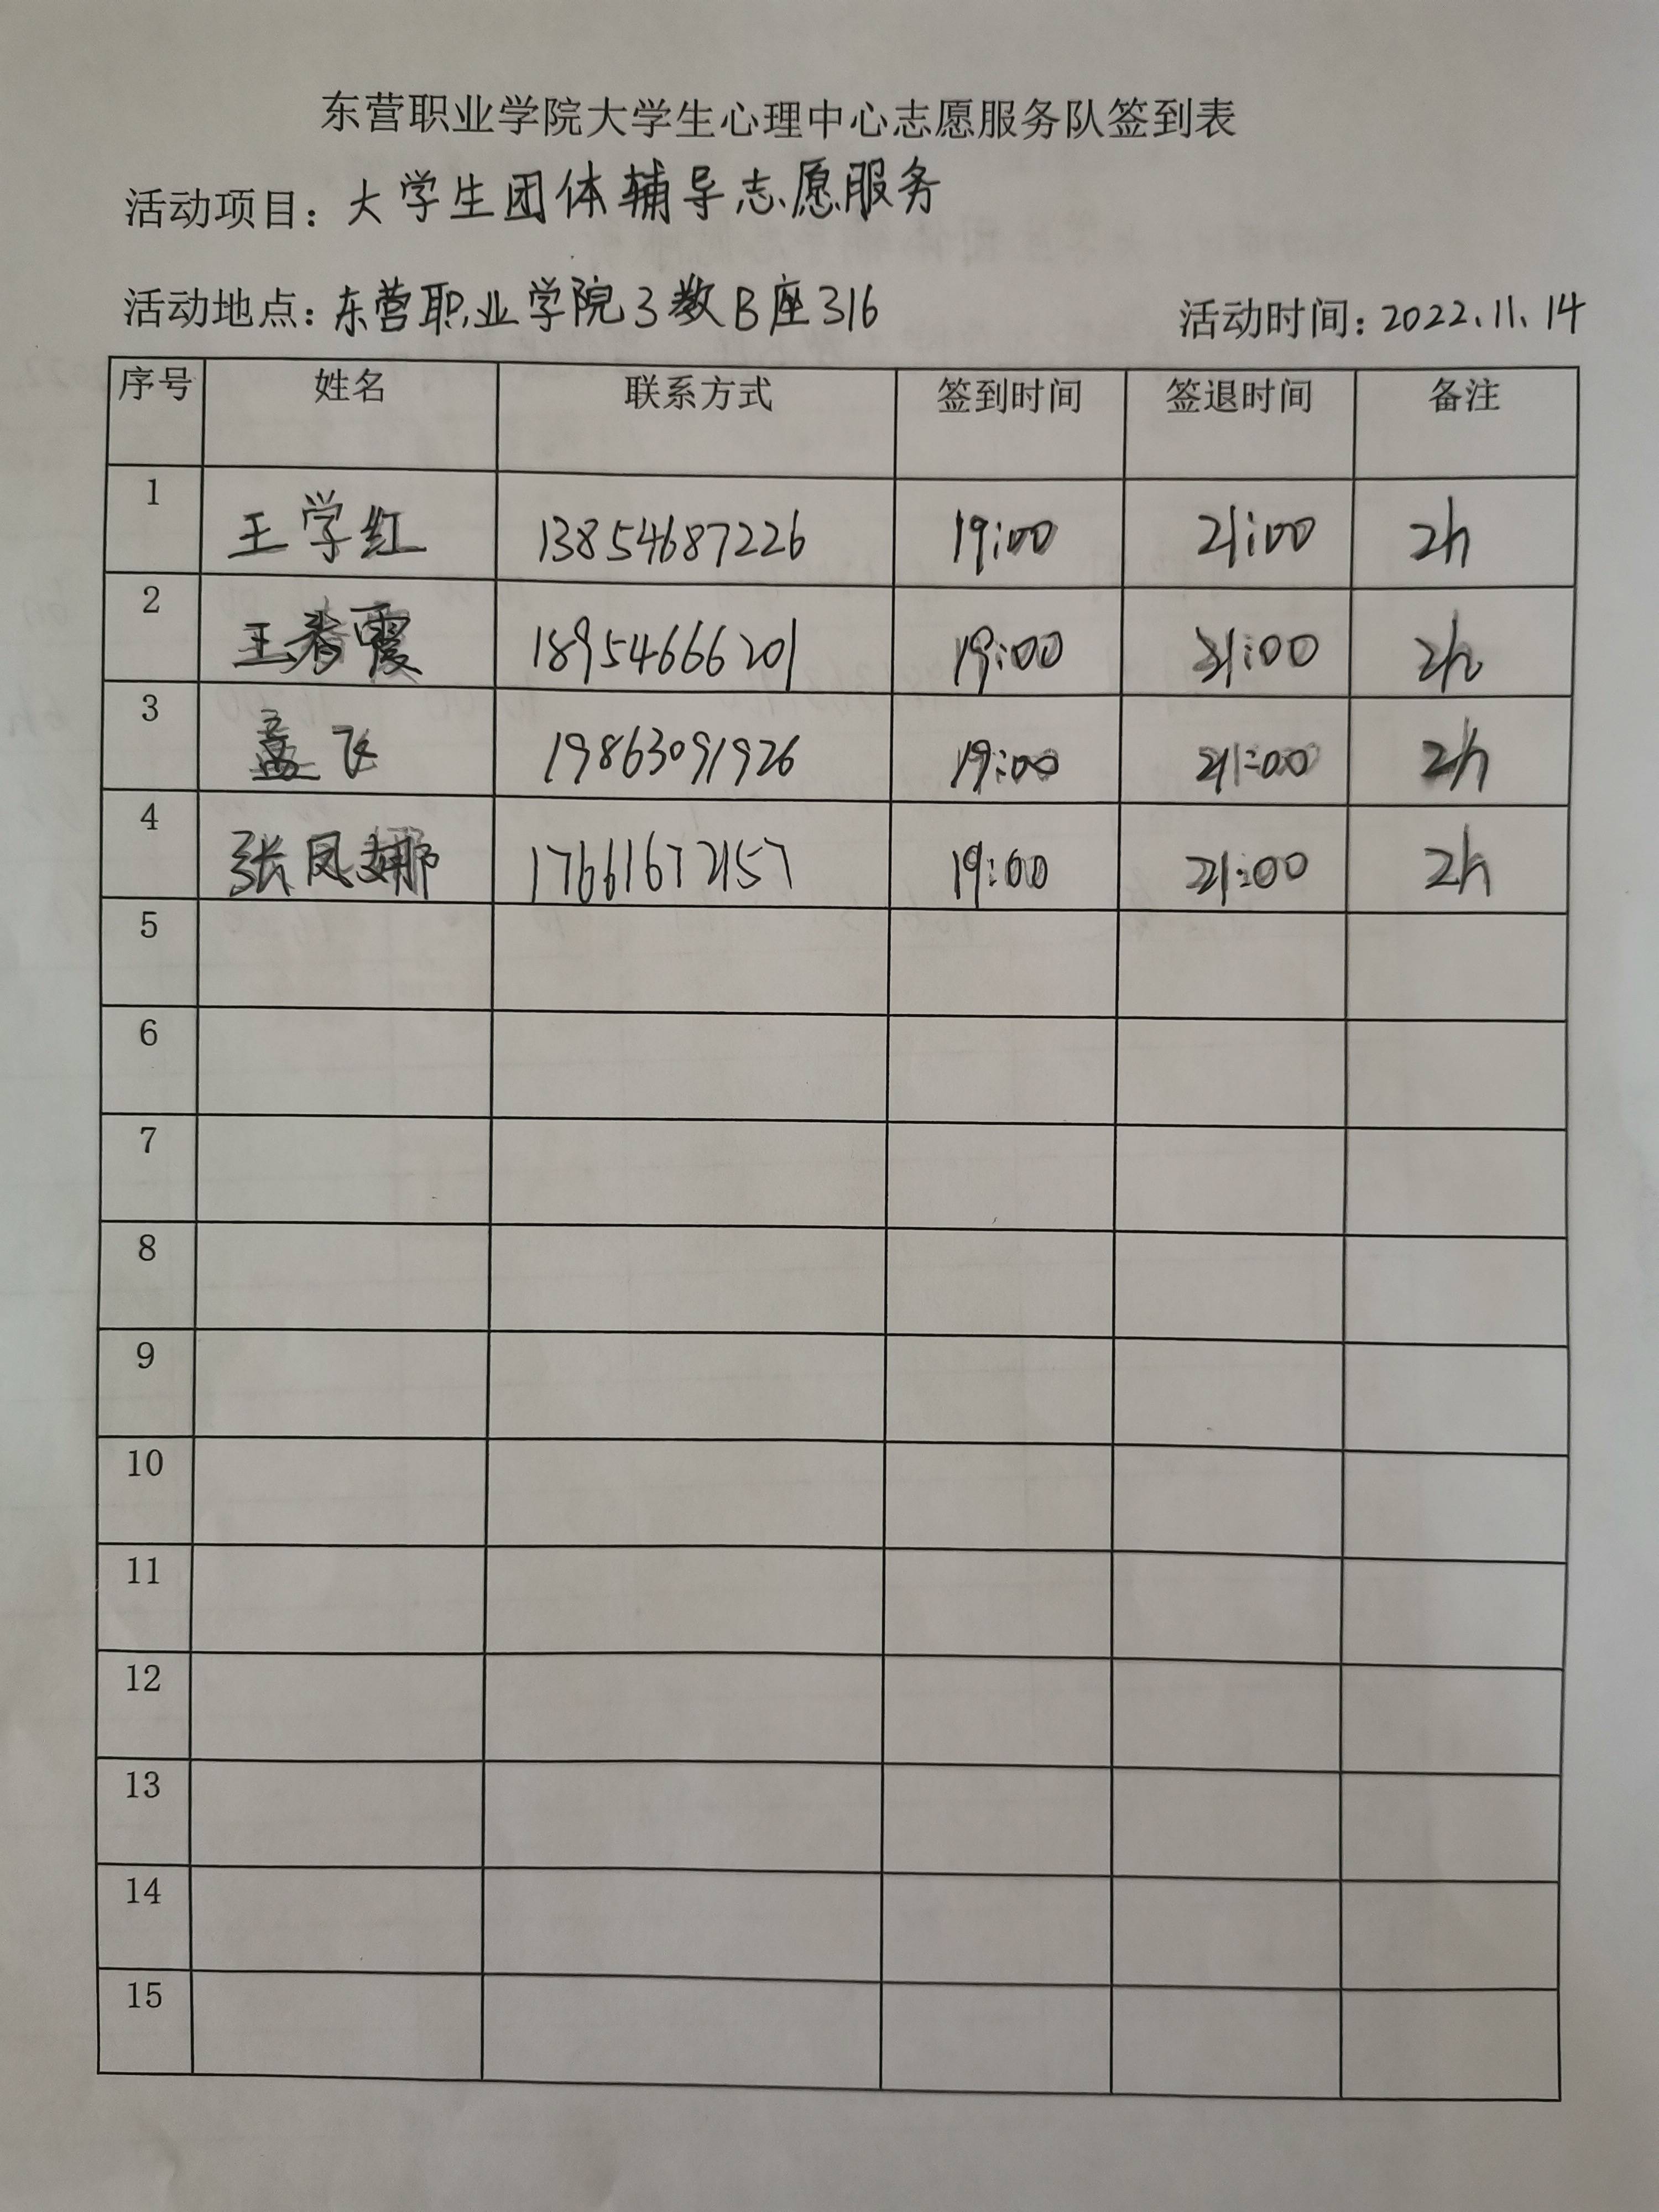 东营职业学院大学生心理中心志愿服务队签到表
活动项目：大学生团体辅导志愿服务
活动地点：东营职业学院3数B座316 活动时间：2022.11.14
序号 姓名 联系方式 签到时间 签退时间 备注
1 王学红 13854687226 19:00 21:00 2h
2 王春霞 18954666201 19:00 21:00 2h
3 孟飞 19863091926 19:00 21:00 2h
4 张凤娜 17661672157 19:00 21:00 2h
5
6
7
8
9
10
11
12
13
14
15